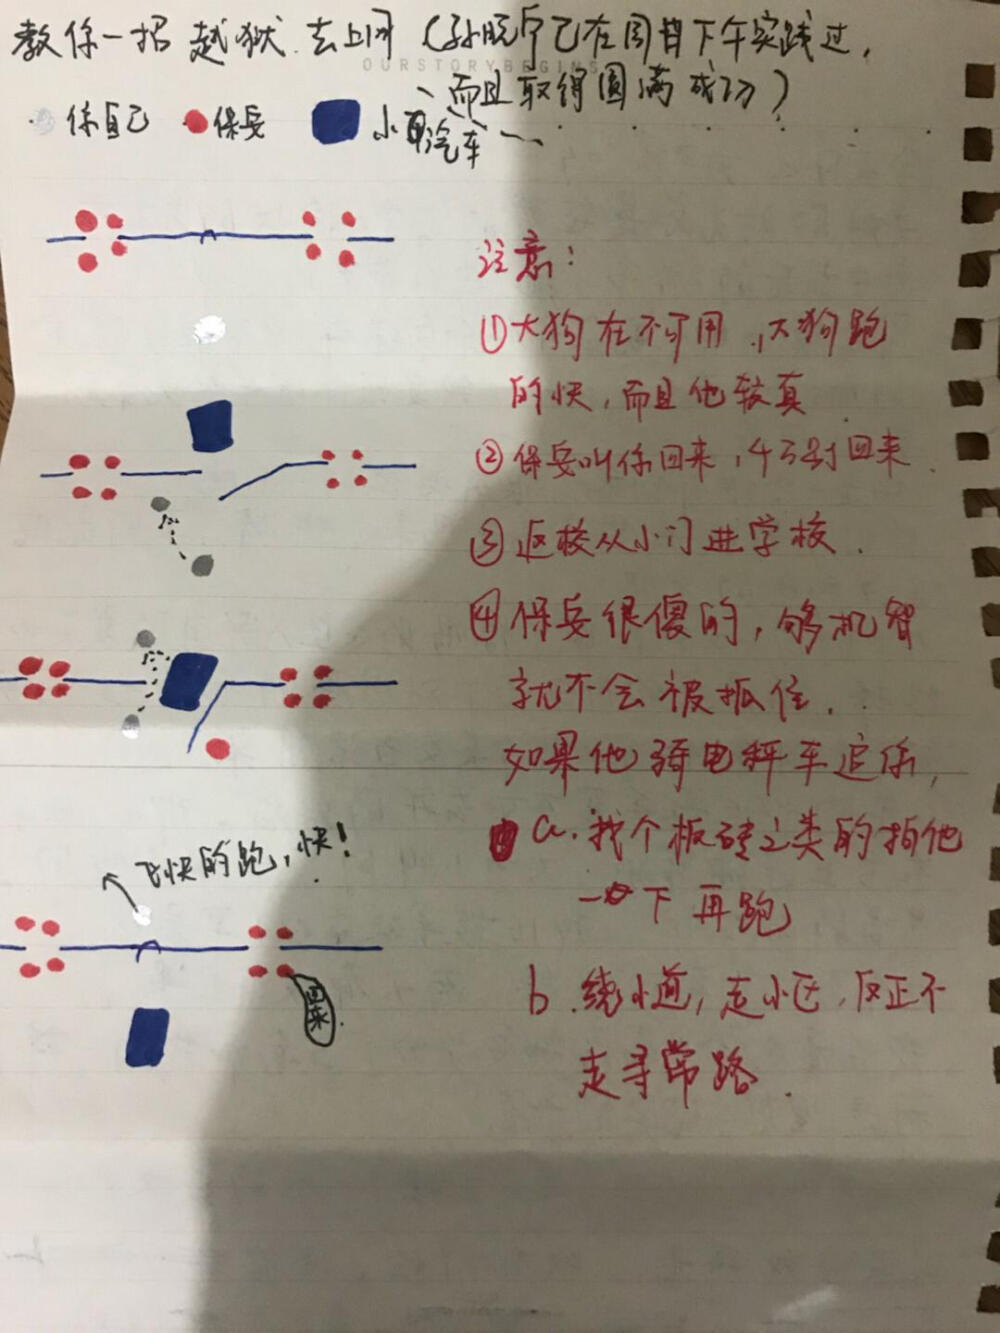 教你一招 越狱.去上网（孙 已在周 下午实践过，
OUR STORY BEGINS
而且取得圆满成功）
你自己 保兵 小 汽车
注意：
①大狗在不可用，大狗跑
的快，而且他较真
②保兵叫你回来，千万别回来.
③返校从小门进学校.
④保兵很傻的，够机智
就不会被抓住.
如果他骑电 车追你，
a.找个板砖之类的拍他
一下再跑
b.绕小道，走小区，反正不
走寻常路.
飞快的跑，快！
回来